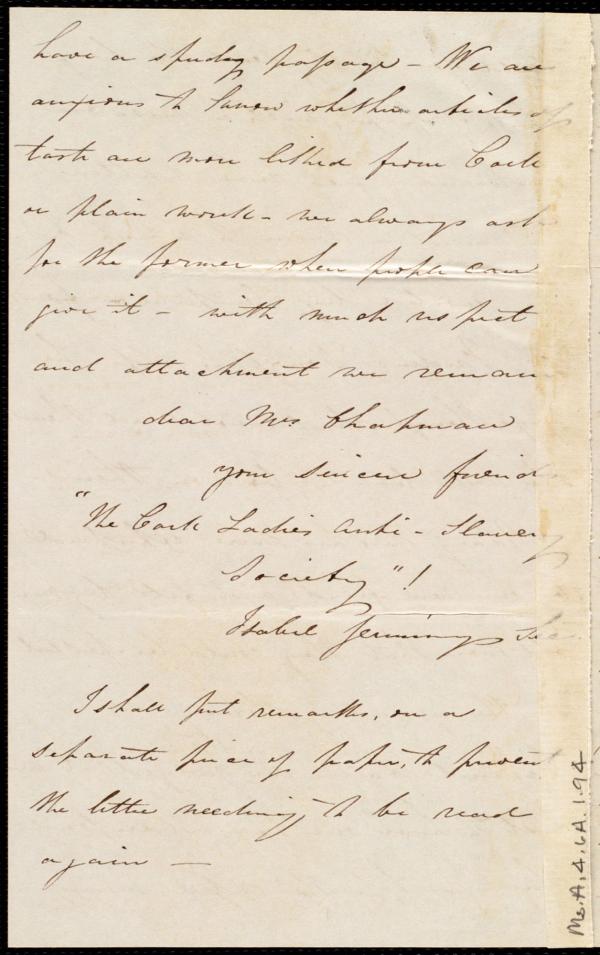 have a speedy passage - We are
anxious to know whether articles of
taste are more liked from Cork
or plain work - we always ask
for the former when people can
give it - with much respect
and attachment we remain
dear Mrs Chapman
your sincere friends
"The Cork Ladies Anti-Slavery
Society"!
Isabel Jennings Sec
I shall put remarks, on a
separate piece of paper, to prevent
the letter needing to be read
again -
Ms. A. 4. 6A. 1. 94